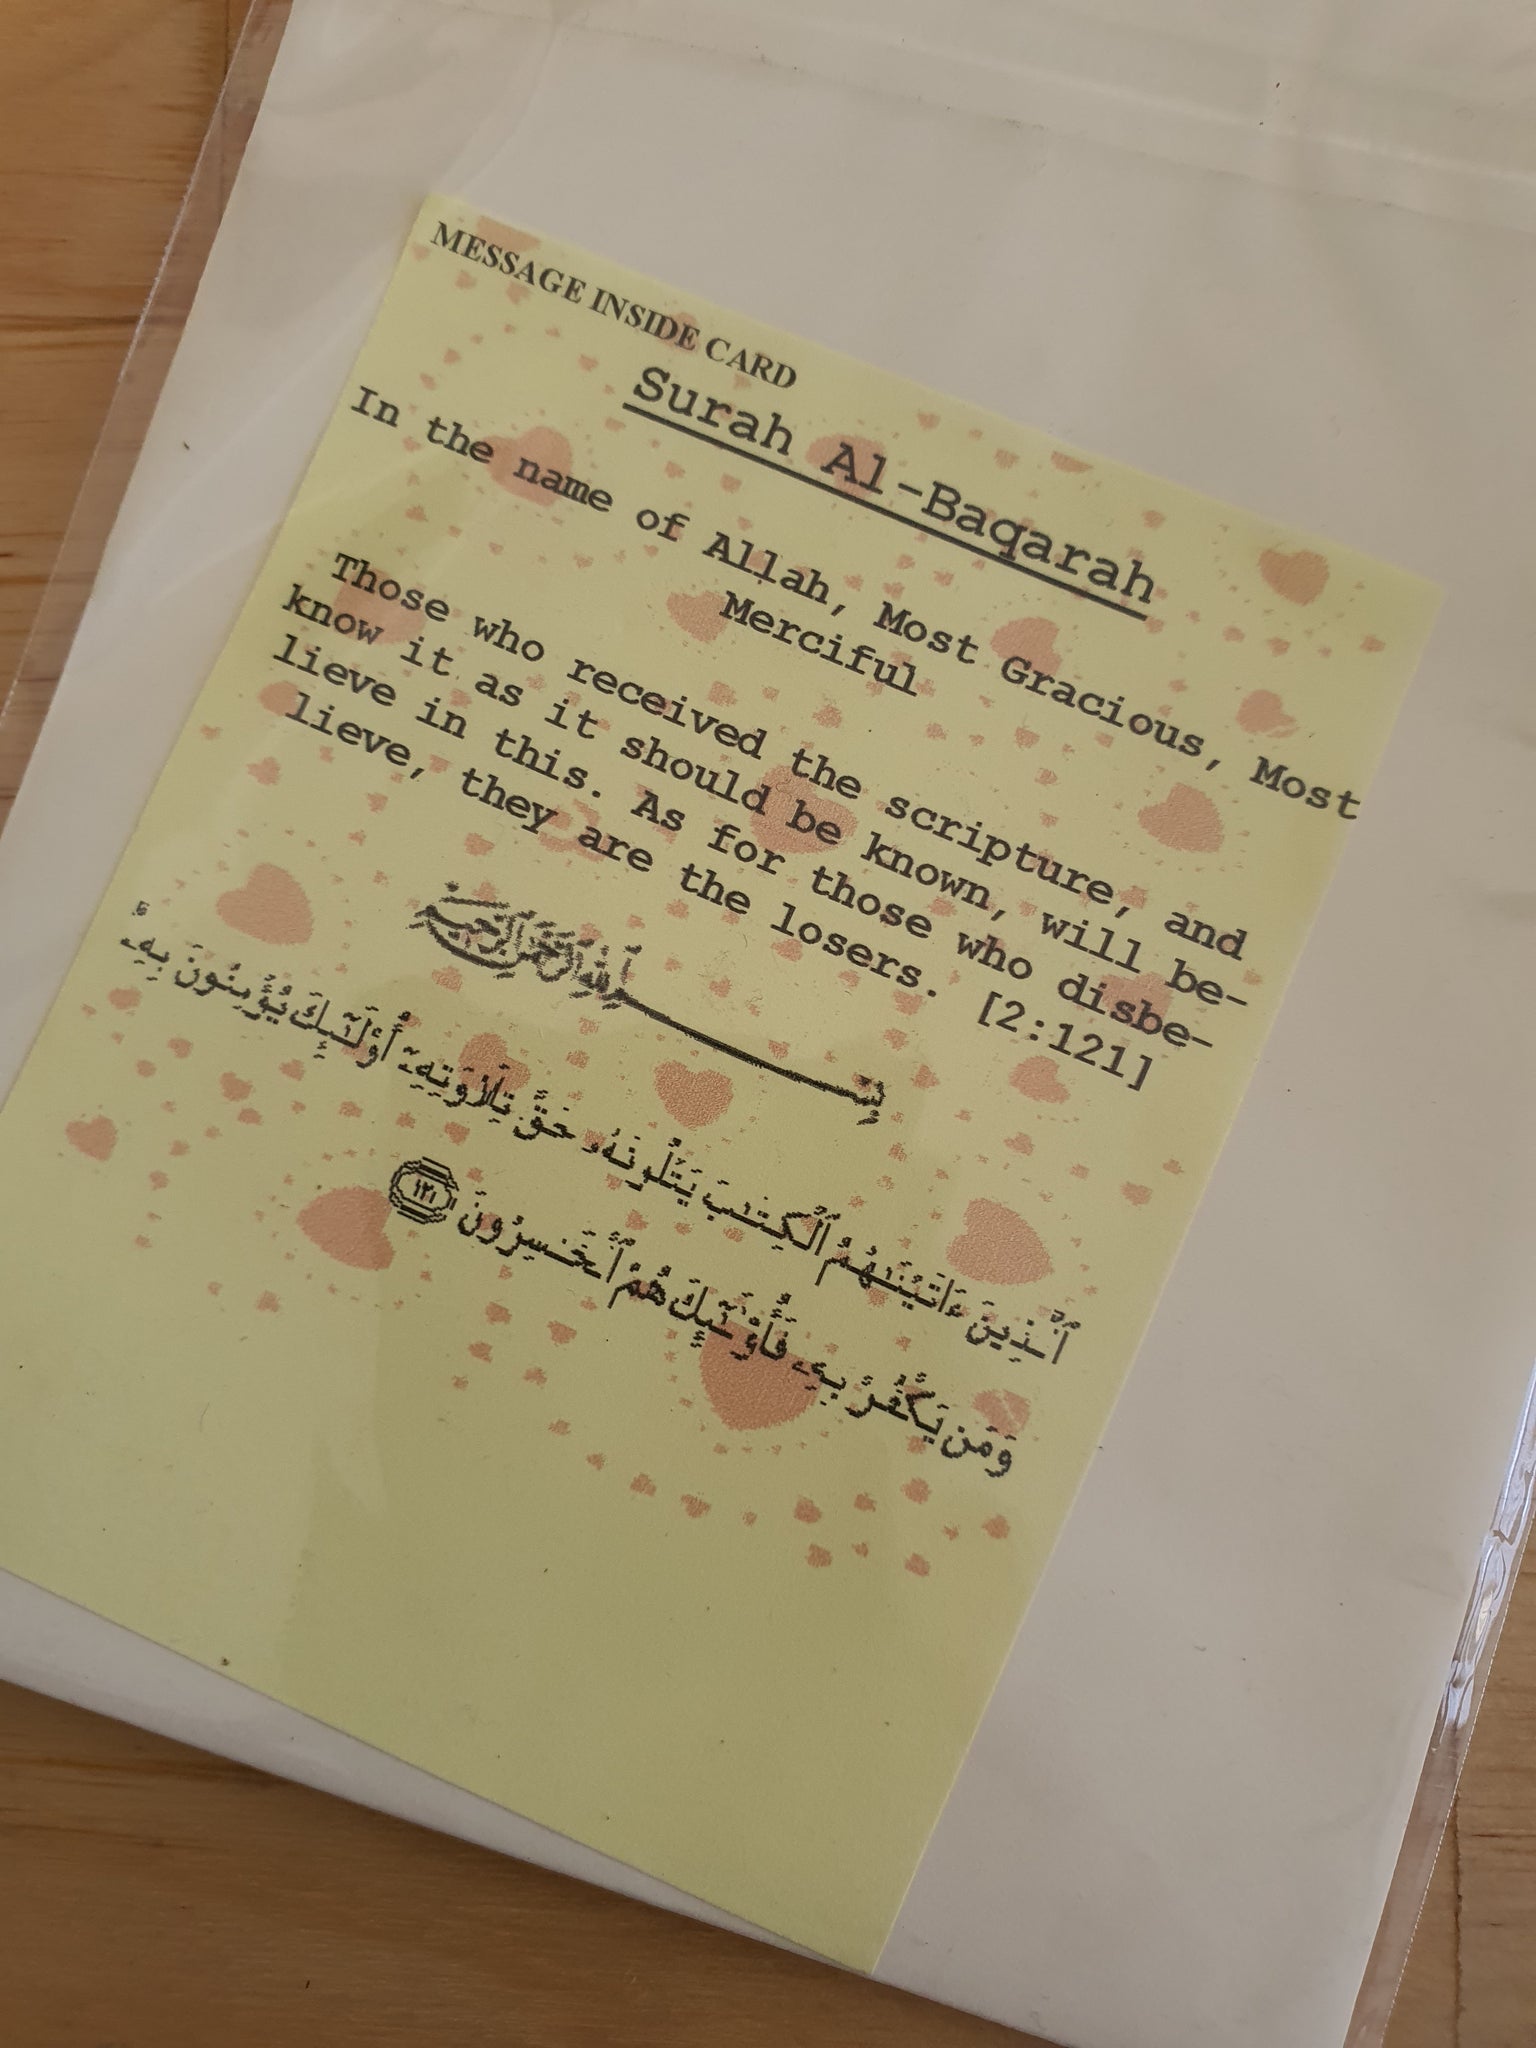 MESSAGE INSIDE CARD
Surah Al-Baqarah
In the name of Allah, Most Gracious, Most
Merciful
Those who received the scripture, and
know it as it should be known, will be-
lieve in this. As for those who disbe-
lieve, they are the losers. [2:121]
بِسْمِ اللَّهِ الرَّحْمَٰنِ الرَّحِيمِ
ٱلَّذِينَ ءَاتَيْنَـٰهُمُ ٱلْكِتَـٰبَ يَتْلُونَهُۥ حَقَّ تِلَاوَتِهِۦٓ أُو۟لَـٰٓئِكَ يُؤْمِنُونَ بِهِۦ ۗ
وَمَن يَكْفُرْ بِهِۦ فَأُو۟لَـٰٓئِكَ هُمُ ٱلْخَـٰسِرُونَ ١٢١